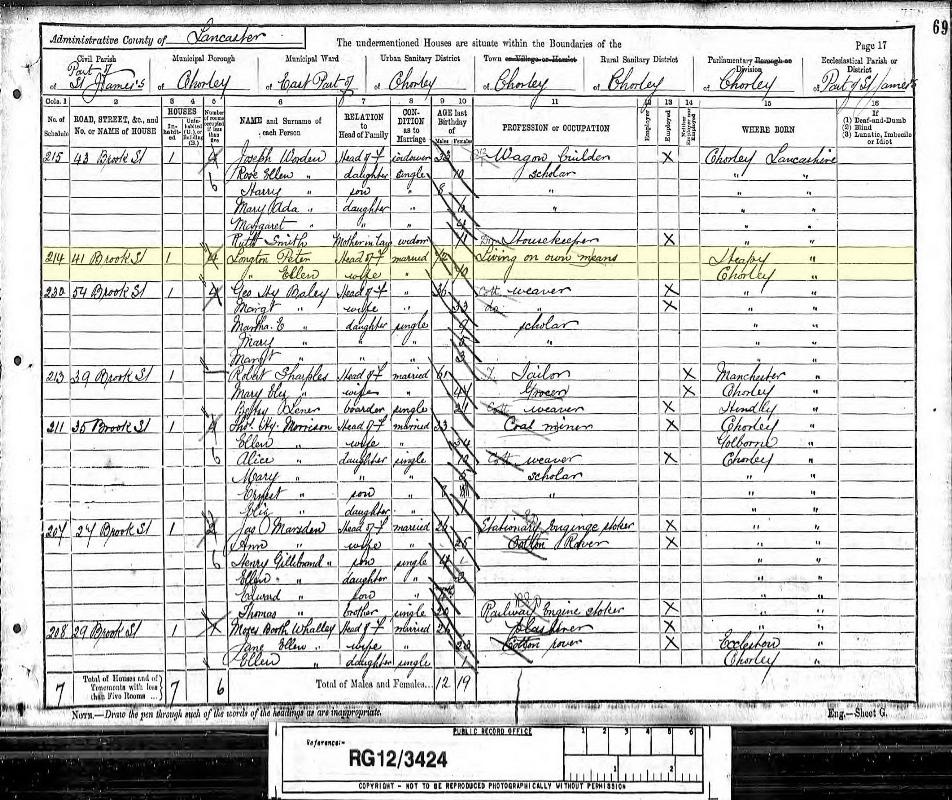 69
Administrative County of Lancaster The undermentioned Houses are situate within the Boundaries of the Page 17
Civil Parish Municipal Borough Municipal Ward Urban Sanitary District Town or Village or Hamlet Rural Sanitary District Parliamentary Borough or Division Ecclesiastical Parish or District
of Part of St James's of Chorley of East Part of of Chorley of Chorley of Chorley of Chorley of Part of St James's
Cols. 1 2 3 4 5 6 7 8 9 10 11 12 13 14 15 16
No. of Schedule ROAD, STREET, &c., and No. or NAME of HOUSE HOUSES Inhabited Uninhabited (U.) or Building (B.) Number of rooms occupied if less than five NAME and Surname of each Person RELATION to Head of Family CONDITION as to Marriage AGE last Birthday of Males Females PROFESSION or OCCUPATION Employer Employed Neither Employer nor Employed WHERE BORN If (1) Deaf-and-Dumb (2) Blind (3) Lunatic, Imbecile or Idiot
215 43 Brook St 1 4 Joseph Worden Head of F widower Wagon builder X Chorley Lancashire
6 Rose Ellen " daughter single 10 scholar " "
Harry " son " 8 " " "
Mary Ada " daughter " " "
Margaret " " " 4 " "
Ruth Smith Mother in law widow Housekeeper X " "
214 41 Brook St 1 4 Longton Peter Head of F married Living on own means Heapy "
" Ellen wife " Chorley "
230 54 Brook St 1 4 Geo Hy Baley Head of F " 36 Cott weaver X " "
Margt " wife " 33 do " X " "
Martha E " daughter single 9 scholar " "
Mary " " " " " "
Margt " " " " "
213 39 Brook St 1 Robert Sharples Head of F married Tailor X Manchester "
Mary Eliz " wife " 44 Grocer X Chorley "
Betsy boarder single 21 Cott weaver X Hindley "
211 35 Brook St 1 4 Thos. Hy. Morrison Head of F married 33 Coal miner X Chorley "
Ellen " wife " 34 Golborne "
6 Alice " daughter single Cott weaver X Chorley "
Mary " " " scholar " "
Ernest " son " " " "
Eliz " daughter " " "
207 27 Brook St 1 2 Jas Marsden Head of F married Stationary Enginge stoker X " "
Ann " wife " 25 Cotton Rover X " "
6 Henry Gillibrand " son single " "
Ellen " " daughter " " "
Edward " son " " "
Thomas " brother single 20 Railway Engine stoker X " "
208 29 Brook St 1 Moses Booth Whalley Head of F married X " "
Jane Ellen " wife " Cotton rover X Eccleston "
Ellen " daughter single 1 Chorley "
7 Total of Houses and of Tenements with less than Five Rooms 7 6 Total of Males and Females... 12 19
NOTE.—Draw the pen through such of the words of the headings as are inappropriate. Eng.—Sheet G.
PUBLIC RECORD OFFICE
1 2 3 4 5 6
Reference:-
RG12/3424
1 2
COPYRIGHT - NOT TO BE REPRODUCED PHOTOGRAPHICALLY WITHOUT PERMISSION